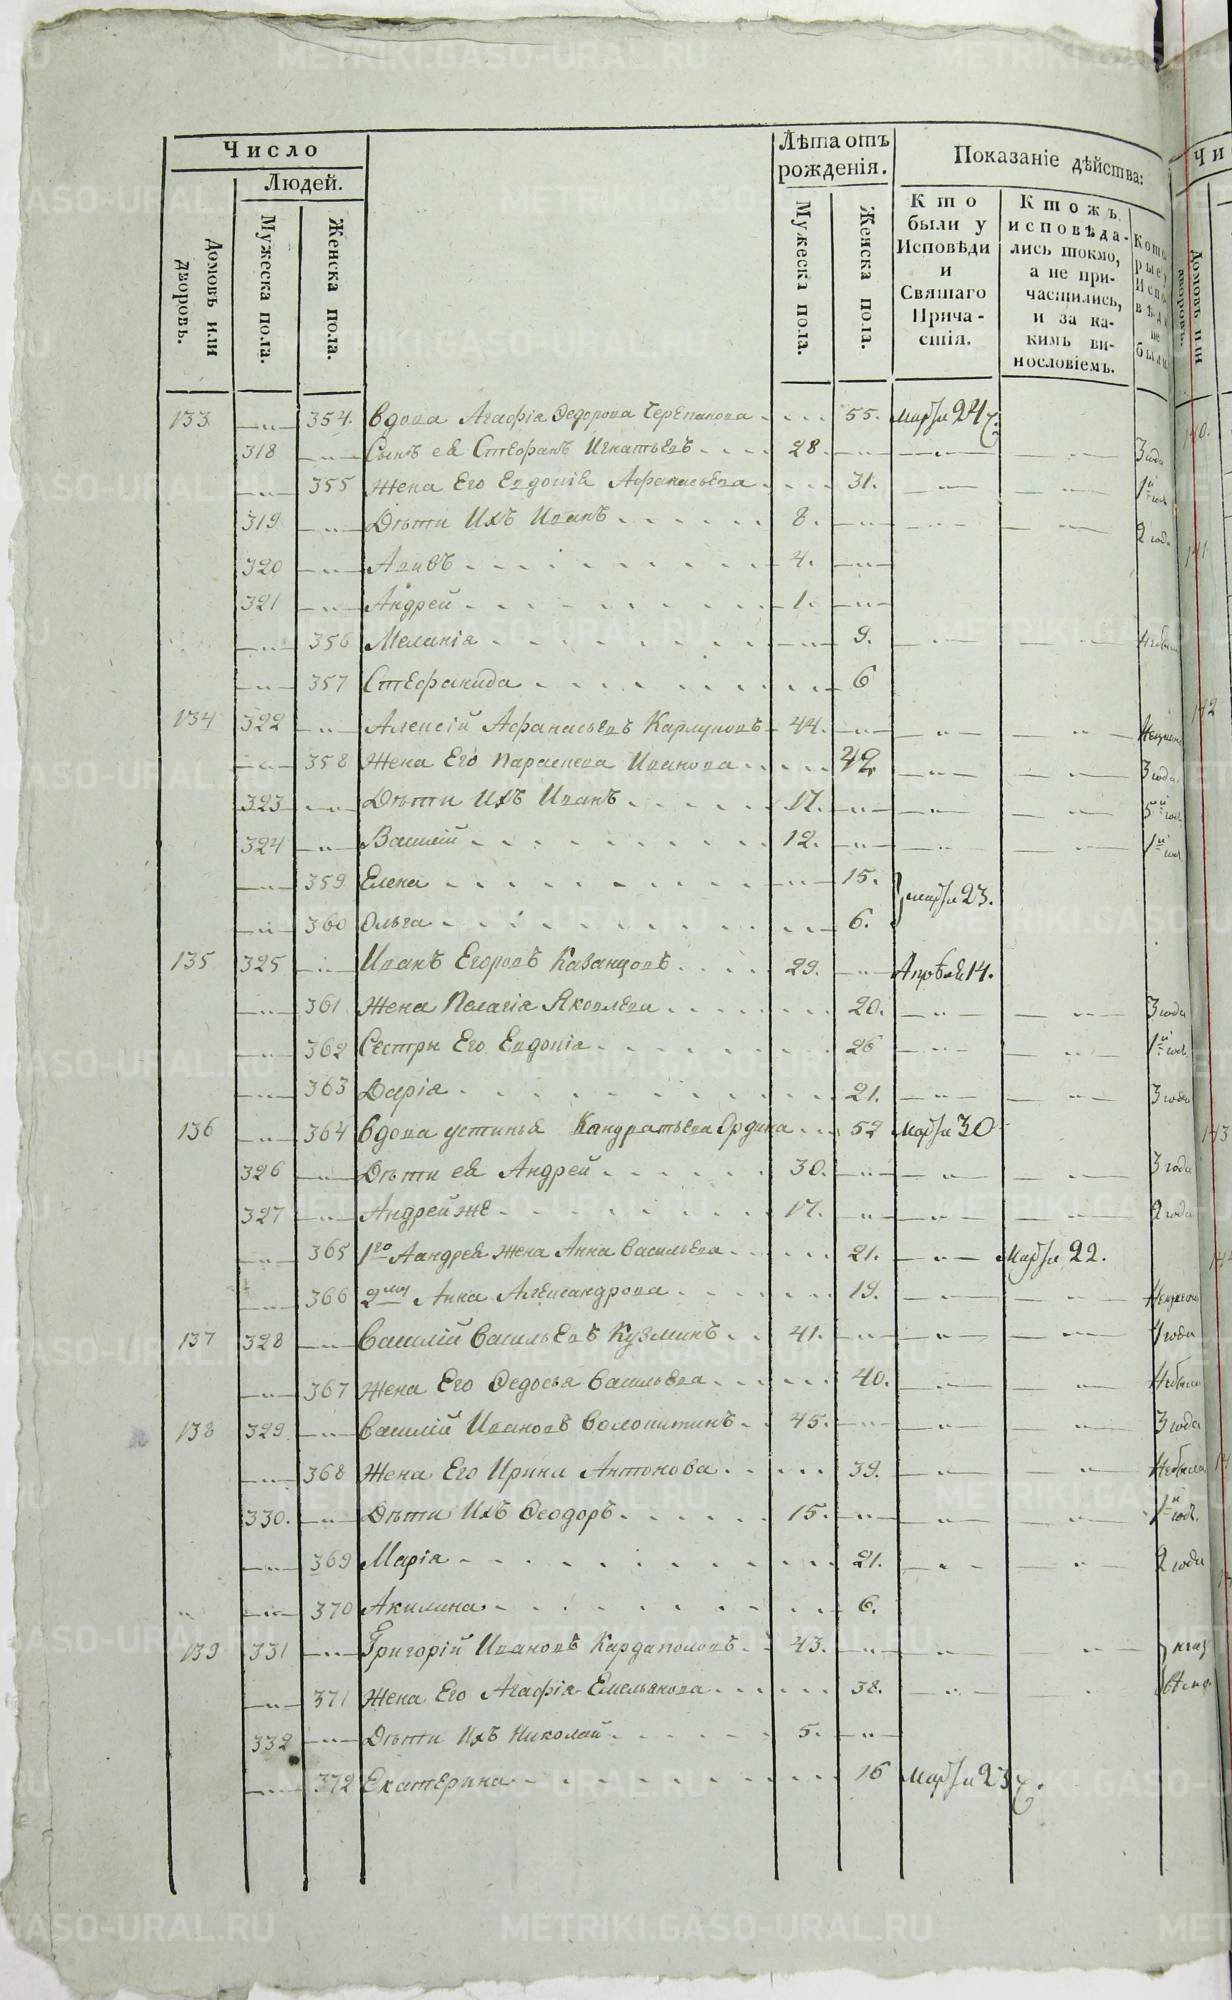 Число
Людей.
Домовъ или дворовъ.
Мужеска пола.
Женска пола.
Лѣта отъ рожденія.
Мужеска пола.
Женска пола.
Показаніе дѣйства:
Кто были у Исповѣди и Святаго Причастія.
Ктожъ исповѣдались токмо, а не причастились, и за какимъ винословіемъ.
Которые у Исповѣди не были
133 354. Вдова Агафія Федорова Черепанова 55. Марта 24
318 Сынъ ея Стефанъ Игнатьевъ 28 3 года
355 Жена Его Евдокія Афанасьева 31. 1й годъ
319 Дѣти Ихъ Иванъ 8. 2 года
320 4.
321 Андрей 1.
356 Меланія 9. не была
357 Стефанида 6
134 322 Алексій Афанасьевъ Карлуковъ 44.
358 Жена Его Параскева Иванова 42 3 года
323 Дѣти Ихъ Иванъ 17. 5й годъ
324 Василій 12. 1й годъ
359 Елена 15. Марта 23.
360 Ольга 6.
135 325 Иванъ Егоровъ Казанцовъ 29. Апрѣля 14.
361 Жена Пелагія Яковлева 20. 3 года
362 Сестры Его Евдокія 26 1й годъ
363 Дарія 21. 3 года
136 364 Вдова Устинья Кандратьева Ордина 52 Марта 30
326 Дѣти ея Андрей 30. 3 года
327 Андрей же 17. 2 года
365 1го Андрея Жена Анна Васильева 21. Марта 22.
366 Анна Александрова 19.
137 328 Василій Васильевъ Кузминъ 41. 4 года
367 Жена Его Федосья Васильева 40. не была
138 329 Василій Ивановъ Волокитинъ 45. 3 года
368 Жена Его Ирина Антонова 39. не была
330. Дѣти Ихъ Феодоръ 15. 1й годъ
369 Марія 21. 2 года
370 Акилина 6.
139 331 Григорій Ивановъ Кардаполовъ 43.
371 Жена Его Агафія Емельянова 38.
332 Дѣти Ихъ Николай 5.
372 Екатерина 16 Марта 23